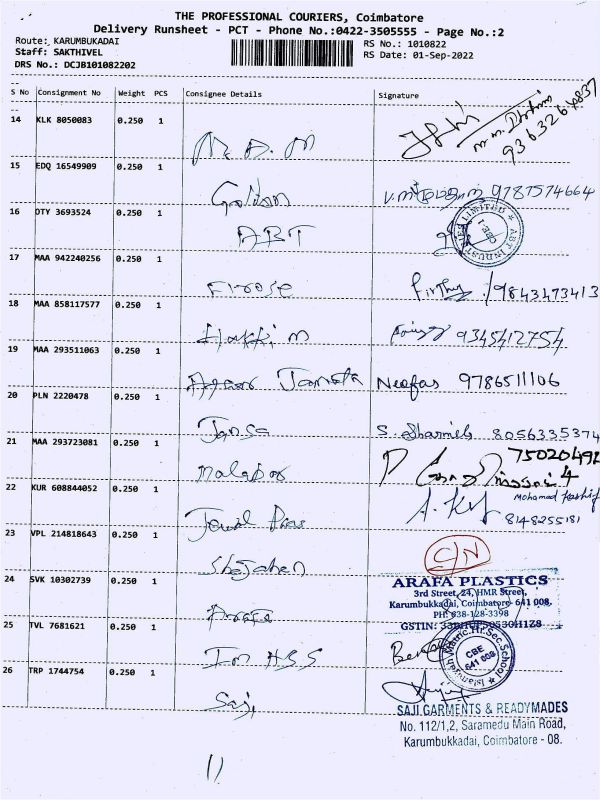 THE PROFESSIONAL COURIERS, Coimbatore
Delivery Runsheet - PCT - Phone No.:0422-3505555 - Page No.:2
Route: KARUMBUKADAI
RS No.: 1010822
Staff: SAKTHIVEL
RS Date: 01-Sep-2022
DRS No.: DCJB101082202
S No Consignment No Weight PCS Consignee Details Signature
14 KLK 8050083 0.250 1
M. D. M
9363264837
15 EDQ 16549909 0.250 1
Golden 9787574664
16 OTY 3693524 0.250 1
ABT
ABT INDUSTRIES LIMITED
17 MAA 942240256 0.250 1
Firose 9843473413
18 MAA 858117577 0.250 1
Hakkim 9345412754
19 MAA 293511063 0.250 1
Janata 9786511106
20 PLN 2220478 0.250 1
S. 8056335374
21 MAA 293723081 0.250 1
Malabar
22 KUR 608844052 0.250 1
Mohamad
8148255181
23 VPL 214818643 0.250 1
C/N
Shajahan
24 SVK 10302739 0.250 1
ARAFA PLASTICS
3rd Street, 24, HMR Street,
Karumbukkadai, Coimbatore- 641 008.
PH: 938-128-3398
GSTIN:
Arafa
25 TVL 7681621 0.250 1
Im HSS
CBE
641 008
26 TRP 1744754 0.250 1
Saji
SAJI GARMENTS & READYMADES
No. 112/1,2, Saramedu Main Road,
Karumbukkadai, Coimbatore - 08.